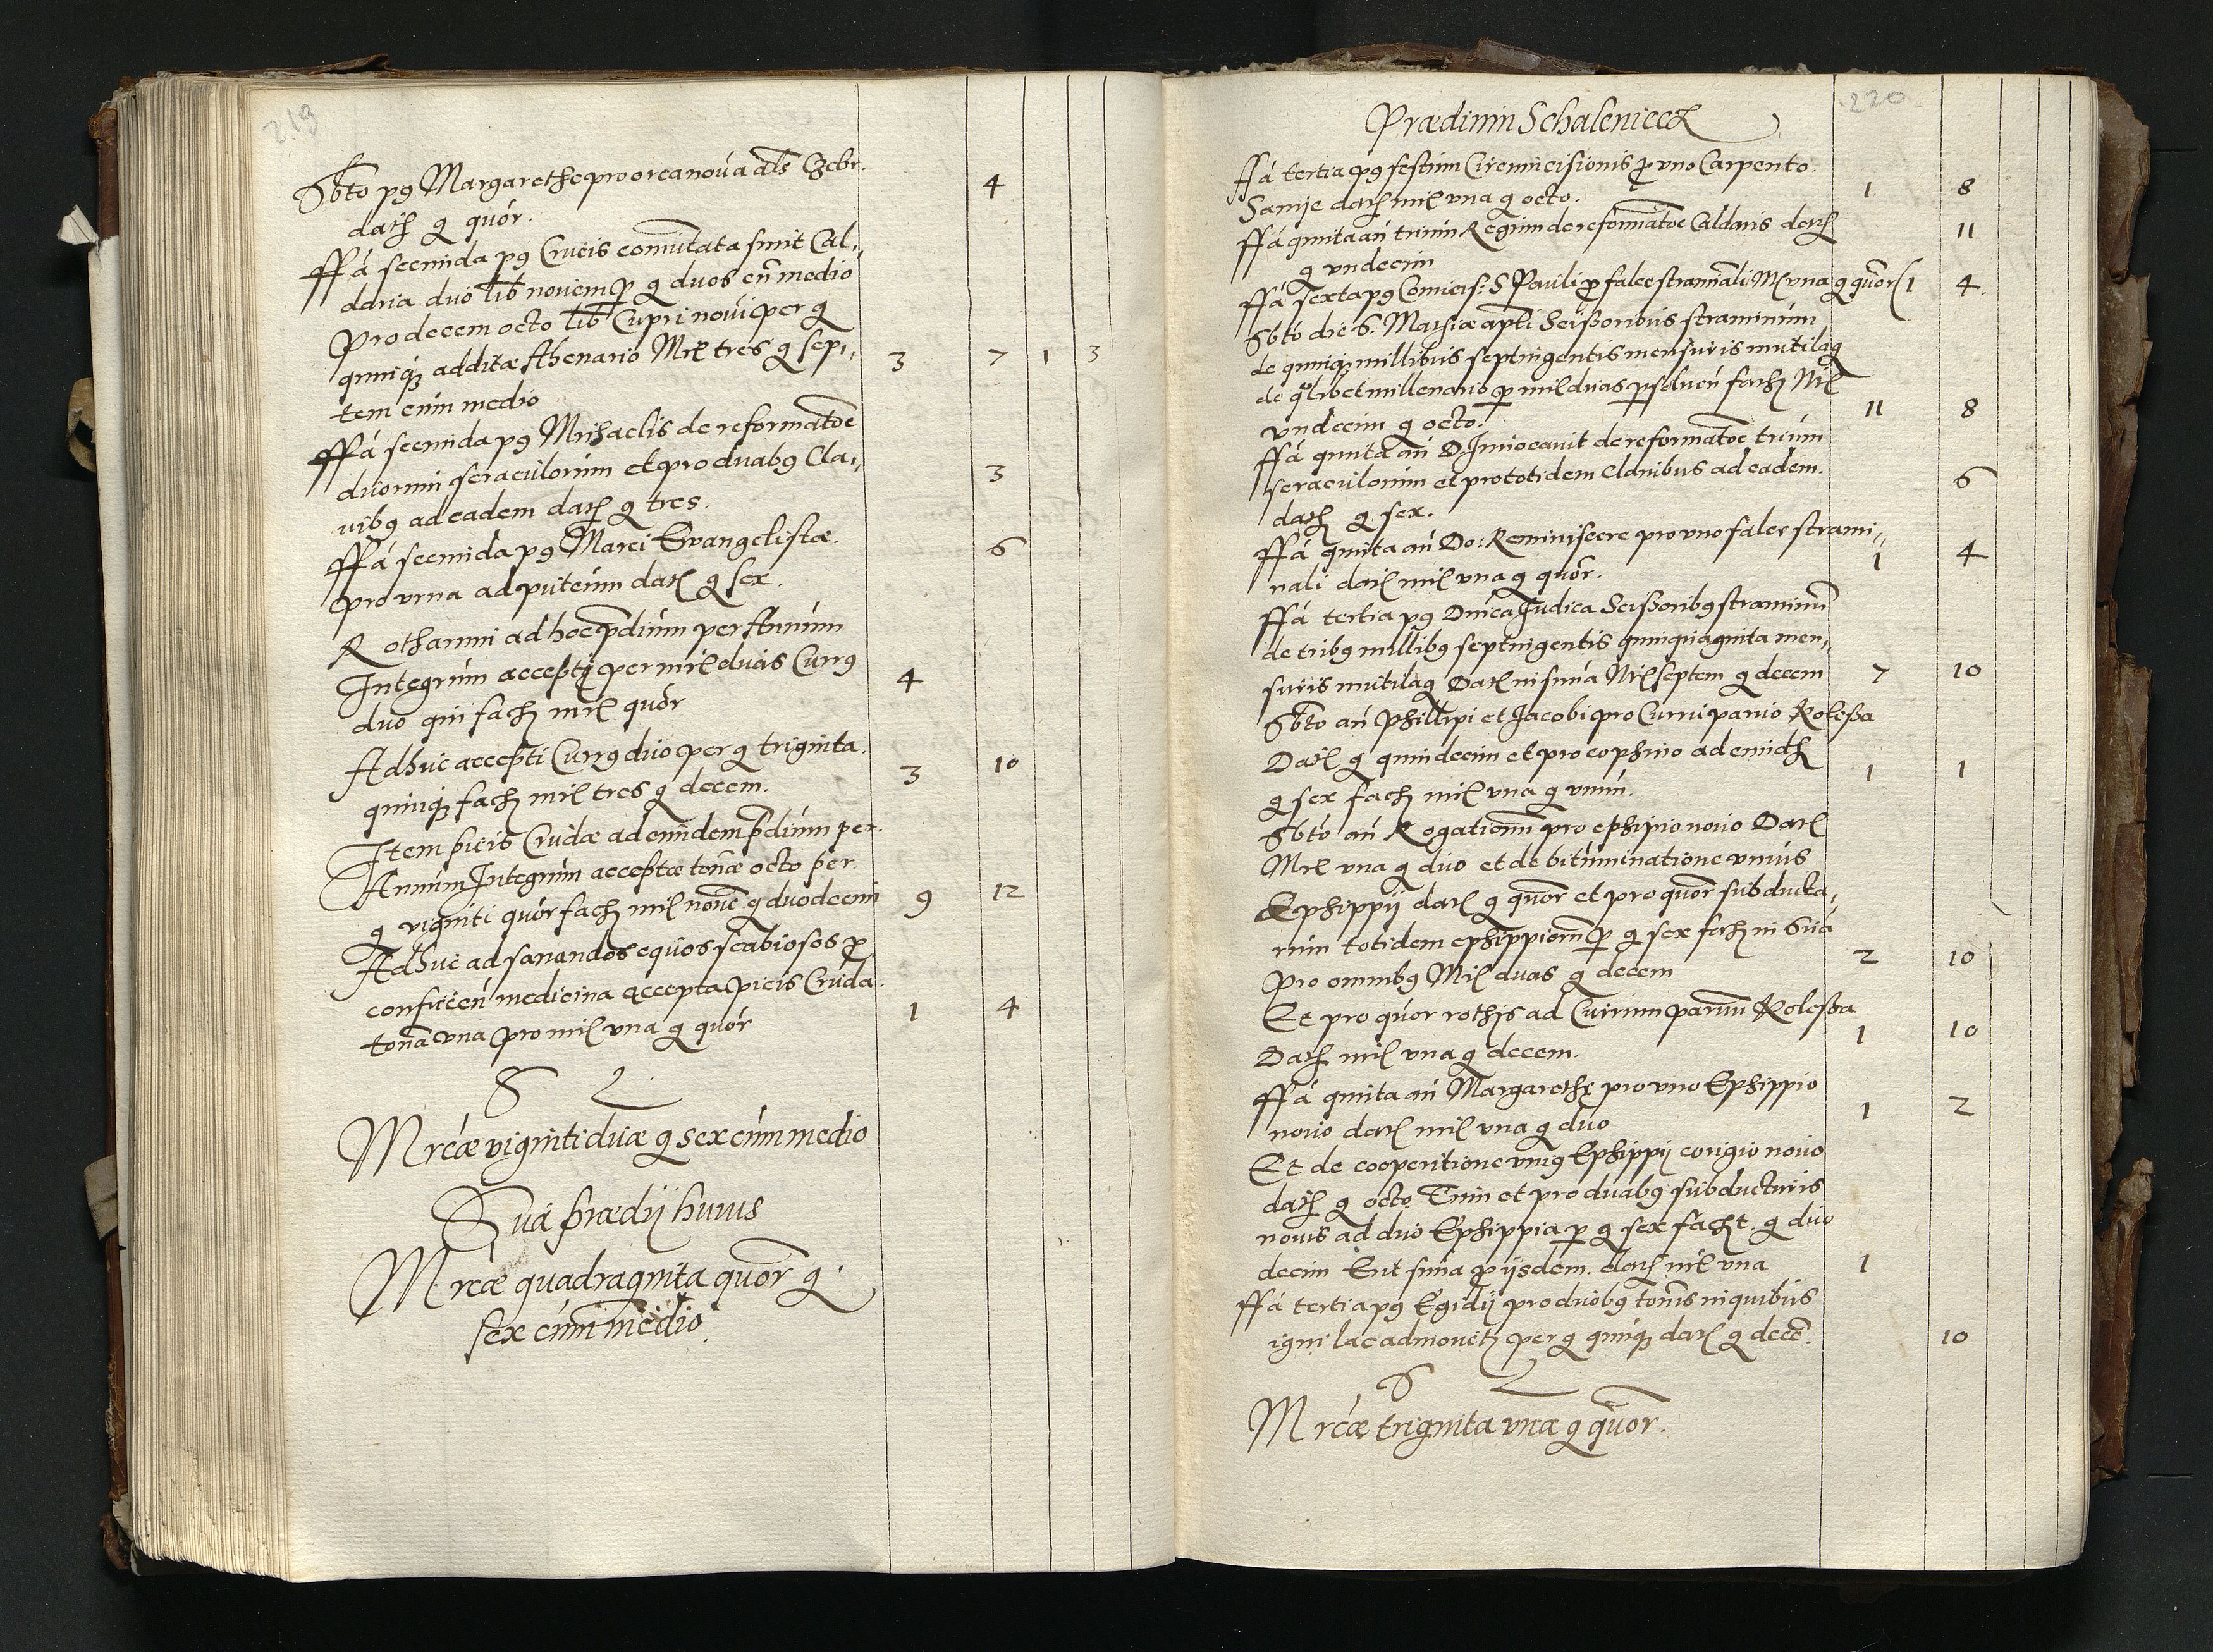 219
Sbto pꝯ Margarethe pro orca nova als Czebr.
datꝭ g quór. 4
ffá secunda pꝯ Crucis comutata sunt Cal„
daria duo lib novem ꝑ g duos cū medio
Pro decem octo lib Cupri novi per g
quinqꝫ additæ Ahenario Mrc tres g sep„ 3 7 1 3
tem cum medio
ffá secunda pꝯ Michaelis de reformatōe
duorum seraculorum et pro duabꝯ Cla„
vibꝯ ad eadem datꝭ g tres. 3
ffá secunda pꝯ Marci Evangelistæ.
pro urna ad puteum datꝭ g sex. 6
Rotharum ad hoc pdium per Annum
Integrum accepti per mrc duas Currꝯ
duo qui faciꝭ mrc quor 4
Adhuc accepti Currꝯ duo per g triginta.
quinqꝫ faciꝭ mrc tres g decem. 3 10
Item picis Crudæ ad eundem pdium per.
Annum Integrum acceptæ tonæ octo per
g viginti quór faciꝭ mrc novē g duodecim 9 12
Adhuc ad sanandos equos scabiosos ꝓ
conficien medicina accepta picis Cruda.
tona una pro mrc una g quór 1 4
S
Mrcæ viginti duæ g sex cum medio
Suā prædij huius
Mrcæ quadraginta quor g.
sex cum medio
220
Prædium Schaleniecz
ffá tertia pꝯ festum Circumcisionis ꝓ vno Carpento.
Sanije datꝭ mrc una g octo. 1 8
ffá quinta an trium Regum de reformatoe Caldaris datꝭ
g undecim 11
ffá sexta pꝯ Convers: S Pauli ꝓ falce straminali Mrc una g quor 1 4
Sbto die S. Mathiæ apti Scissoribus straminum
de quinqꝫ millibus septingentis mensuris mutilaꝗ
de quolibet millenario ꝑ mrc duas ꝑsoluen faciꝭ Mrc
undecim g octo. 11 8
ffá quinta an D. Invocavit de reformatoe trium
seraculorum et pro totidem Clavibus ad eadem.
datꝭ g sex. 6
ffá quinta an Do: Reminiscere pro vno falce strami„
nali datꝭ mrc una g quor. 1 4
ffá tertia pꝯ Dnica Judica Scissoribꝯ straminum
de tribꝯ millibꝯ septingentis quinquaginta men„
suris mutilaꝗ Datꝭ in suma Mrc septem g decem 7 10
Sbto an Phillipi et Jacobi pro Curru parvo Kolessa
Datꝭ g quindecim et pro cophino ad eundꝭ
g sex faciꝭ mrc una g unum. 1 1
Sbto an Rogationum pro ephipio novo Datꝭ
Mrc una g duo et de bituminatione unius
Ephippij datꝭ g quor et pro quor subducta„
rum totidem ephippiorum ꝑ g sex faciꝭ in Suā
Pro omnibꝯ Mrc duas g decem 2 10
Et pro quór rothis ad Currum parvum Kolessa
Datꝭ mrc una g decem. 1 10
ffá quinta an Margarethę pro vno Ephippio
novo datꝭ mrc una g duo 1 2
Et de cooperitione uniꝯ Ephippij corigio novo
datꝭ g octo Tum et pro duabꝯ subducturis
novis ad duo Ephippia ꝑ g sex faciꝭt. g duo
decim Erit suma ꝓ ijsdem. datꝭ mrc una 1
ffá tertia pꝯ Egidij pro duobꝯ tonnis in quibus
igni lac admovetꝭ per g quinqꝫ datꝭ g decē. 10
S
Mrcæ triginta una g quor.